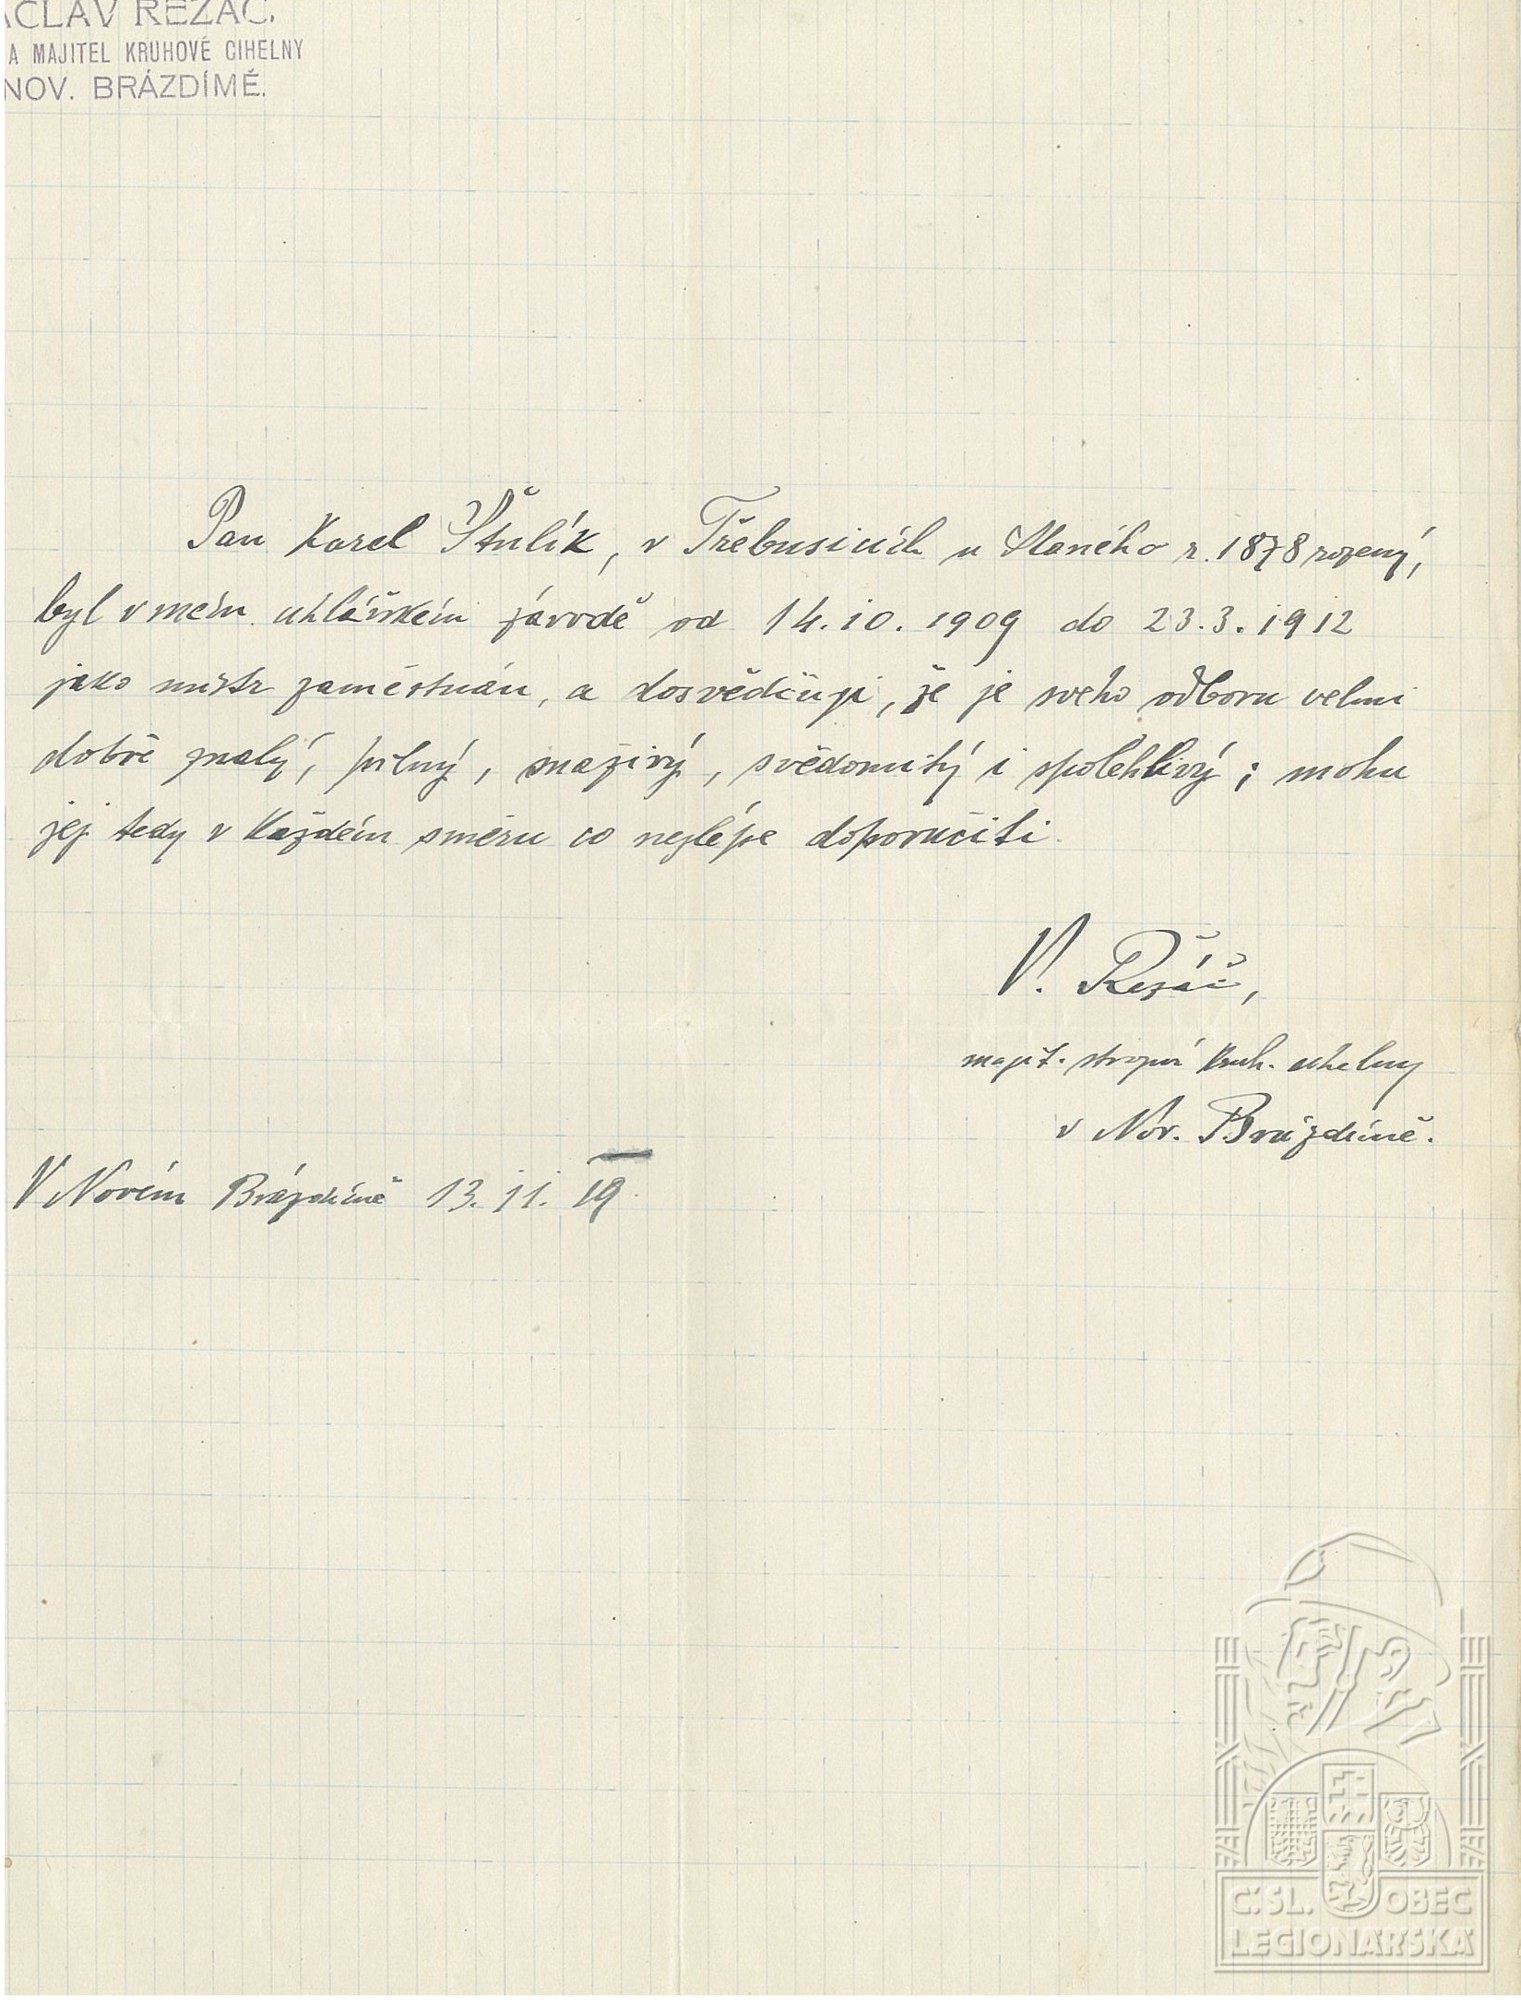 ÁCLAV ŘEZÁČ,
A MAJITEL KRUHOVÉ CIHELNY
NOV. BRÁZDÍMĚ.
Pan Karel Štulík, v Třebusicích u Slaného r. 1878 rozený,
byl v mém cihlářském závodě od 14. 10. 1909 do 23. 3. 1912
jako mistr zaměstnán, a dosvědčuji, že je svého odboru velmi
dobře znalý, pilný, snaživý, svědomitý i spolehlivý; mohu
jej tedy v každém směru co nejlépe doporučiti.
V. Řezáč,
majit. strojní kruh. cihelny
v Nov. Brázdímě.
V Novém Brázdímě 13. 11. 19
ČSL. OBEC
LEGIONÁŘSKÁ